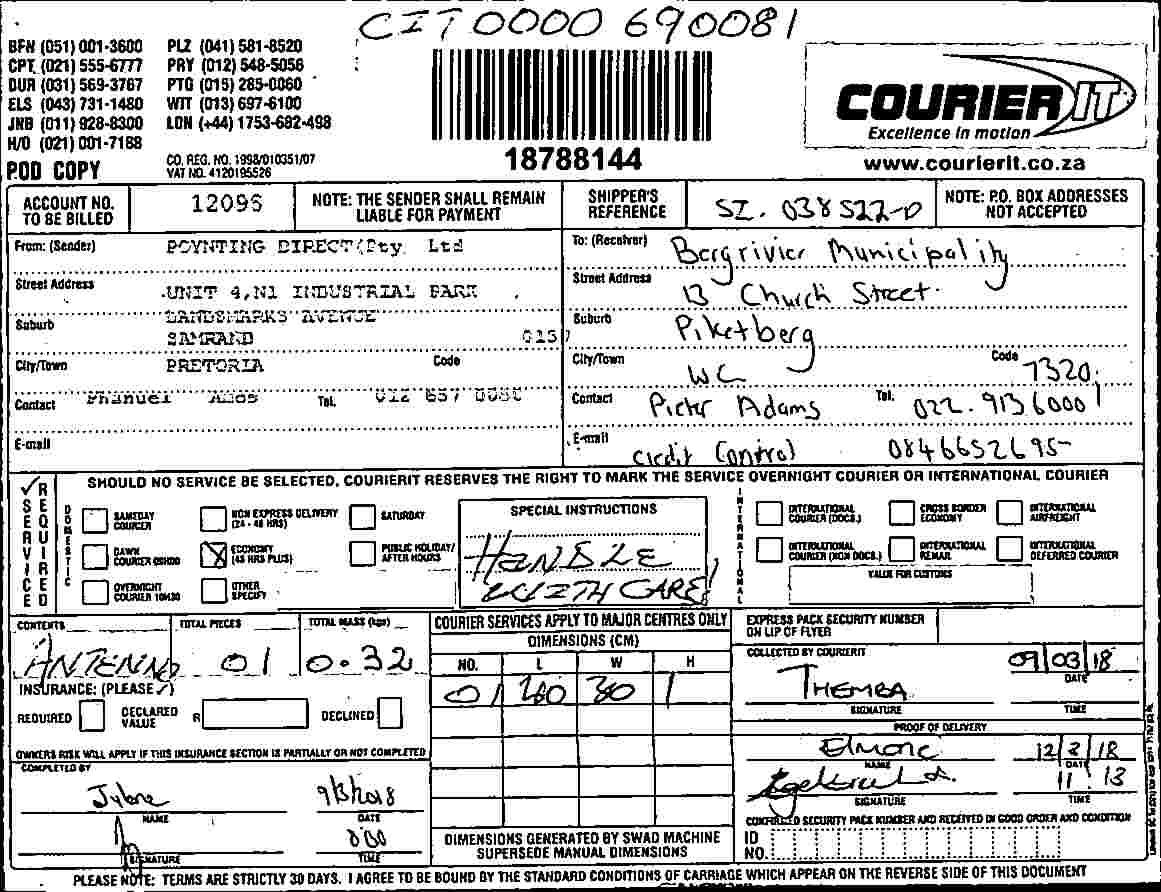 CIT0000 690081
BFN (051) 001-3600 PLZ (041) 581-8520
CPT (021) 555-6777 PRY (012) 548-5056
DUR (031) 569-3767 PTG (015) 285-0060
ELS (043) 731-1480 WIT (013) 697-6100
JNB (011) 928-8300 LDN (+44) 1753-682-498
H/O (021) 001-7188
POD COPY
CO. REG. NO. 1998/010351/07
VAT NO. 4120195526
18788144
COURIER IT
Excellence in motion
www.courierit.co.za
ACCOUNT NO. TO BE BILLED 12096
NOTE: THE SENDER SHALL REMAIN LIABLE FOR PAYMENT
SHIPPER'S REFERENCE SI. 038522-D
NOTE: P.O. BOX ADDRESSES NOT ACCEPTED
From: (Sender) POYNTING DIRECT(Pty. Ltd
Street Address UNIT 4,N1 INDUSTRIAL PARK
Suburb LANDSMARKS AVENUE
SAMRAND 0157
City/Town PRETORIA Code
Contact Phanuel Tel. 012 657 0050
E-mail
To: (Receiver) Bergrivier Municipality
Street Address 13 Church Street.
Suburb Piketberg
City/Town WC Code 7320
Contact Pieter Adams Tel. 022. 9136000
E-mail Credit Control 0846652695
SHOULD NO SERVICE BE SELECTED, COURIERIT RESERVES THE RIGHT TO MARK THE SERVICE OVERNIGHT COURIER OR INTERNATIONAL COURIER
SERVICE REQUIRED
DOMESTIC
SAMEDAY COURIER
NON EXPRESS DELIVERY (24 - 48 HRS)
SATURDAY
DAWN COURIER 09H00
ECONOMY (48 HRS PLUS)
PUBLIC HOLIDAY/ AFTER HOURS
OVERNIGHT COURIER 10H30
OTHER SPECIFY
SPECIAL INSTRUCTIONS
HANDLE
WITH CARE!
INTERNATIONAL
INTERNATIONAL COURIER (DOCS.)
CROSS BORDER ECONOMY
INTERNATIONAL AIRFREIGHT
INTERNATIONAL COURIER (NON DOCS.)
INTERNATIONAL REMAIL
INTERNATIONAL DEFERRED COURIER
VALUE FOR CUSTOMS
CONTENTS TOTAL PIECES TOTAL MASS (kgs)
ANTENNA 01 0.32
INSURANCE: (PLEASE ✓)
REQUIRED DECLARED VALUE R DECLINED
OWNERS RISK WILL APPLY IF THIS INSURANCE SECTION IS PARTIALLY OR NOT COMPLETED
COMPLETED BY
9/3/2018
NAME DATE
SIGNATURE TIME
COURIER SERVICES APPLY TO MAJOR CENTRES ONLY
DIMENSIONS (CM)
NO. L W H
01 30 1
DIMENSIONS GENERATED BY SWAD MACHINE SUPERSEDE MANUAL DIMENSIONS
EXPRESS PACK SECURITY NUMBER ON LIP OF FLYER
COLLECTED BY COURIERIT
THEMBA 09/03/18
DATE
SIGNATURE TIME
PROOF OF DELIVERY
Elmone 12/3/18
NAME DATE
11 : 13
SIGNATURE TIME
CONFIRMED SECURITY PACK NUMBER AND RECEIVED IN GOOD ORDER AND CONDITION
ID NO.
PLEASE NOTE: TERMS ARE STRICTLY 30 DAYS. I AGREE TO BE BOUND BY THE STANDARD CONDITIONS OF CARRIAGE WHICH APPEAR ON THE REVERSE SIDE OF THIS DOCUMENT